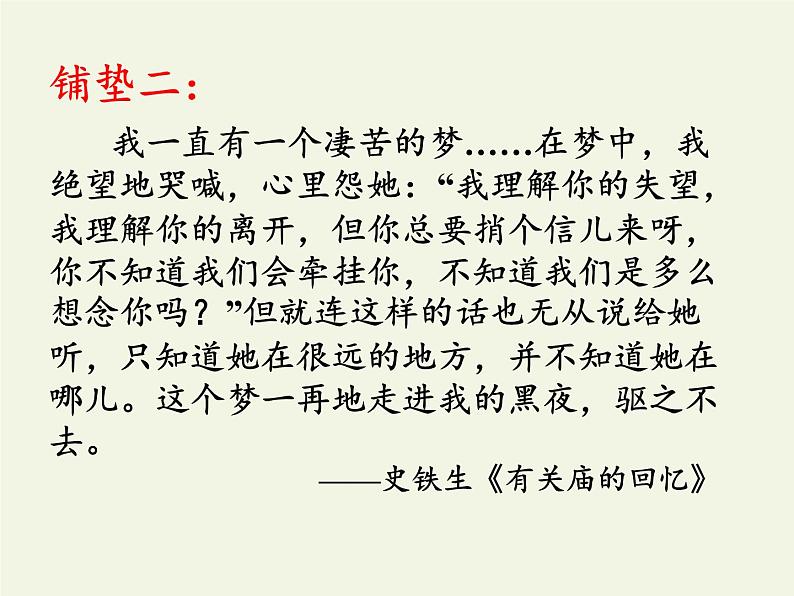 铺垫二：
我一直有一个凄苦的梦……在梦中，我
绝望地哭喊，心里怨她：“我理解你的失望，
我理解你的离开，但你总要捎个信儿来呀，
你不知道我们会牵挂你，不知道我们是多么
想念你吗？”但就连这样的话也无从说给她
听，只知道她在很远的地方，并不知道她在
哪儿。这个梦一再地走进我的黑夜，驱之不
去。
——史铁生《有关庙的回忆》